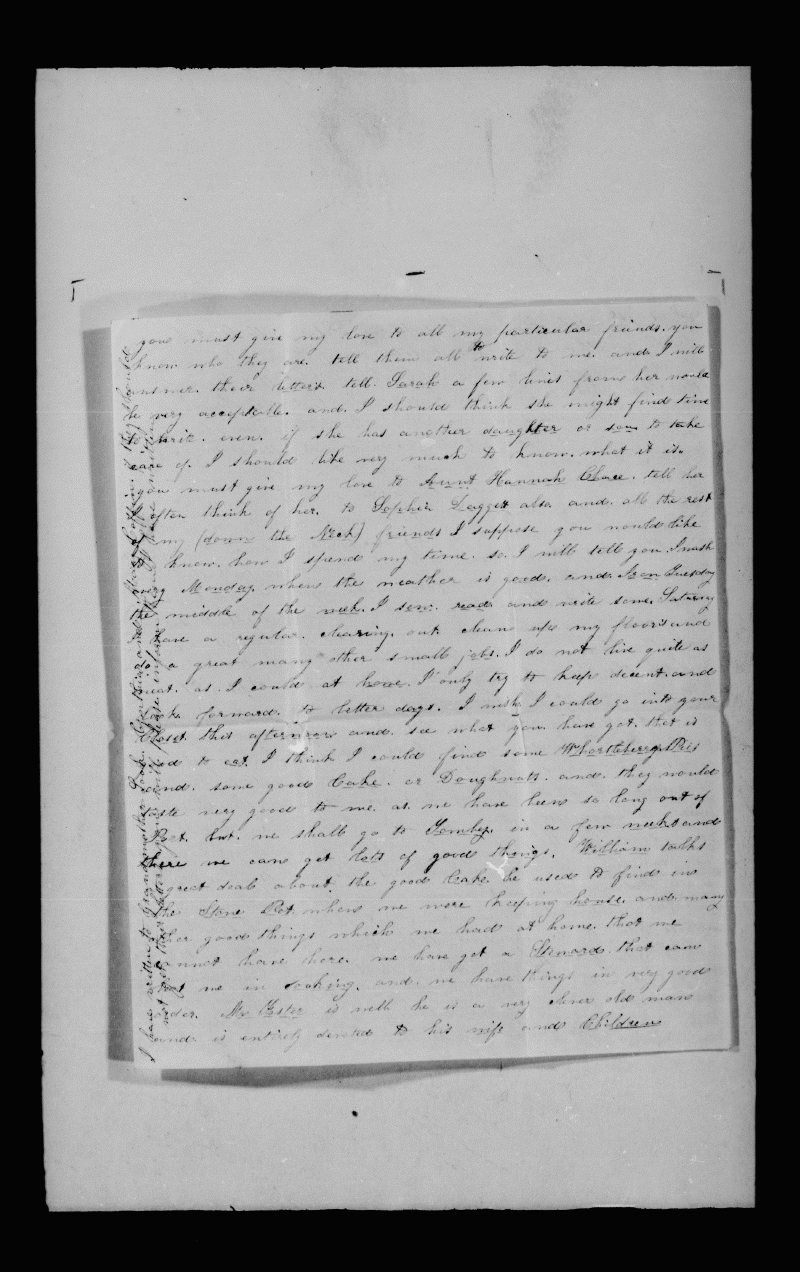 you must give my love to all my particular friends. you
know who they are. tell them all to write to me. and I will
answer. their letters tell. Sarah a few lines from her would
be very acceptable. and. I should think she might find time
to write. even. if she has another daughter or son to take
care of. I should like very much to know. what it is.
you must give my love to Aunt Hannah Chace. tell her
I often think of her. to Sophia Daggett also. and. all the rest
my (down the Neck) friends I suppose you would like
know. how I spend my time. so. I will tell you. I wash
Monday. when the weather is good. and. Iron Tuesday
the middle of the week. I sew. read and write some. Saturday
I have a regular. clearing. out. clean up my floors and
do a great many other small jobs. I do not live quite as
neat. as. I could at home. I only try to keep decent. and
look forward. to better days. I wish I could go into your
Closet this afternoon and. see what you have got. that is
good to eat. I think I could find some Whortleberry Pies
and. some good Cake. or Doughnuts. and. they would
taste very good to me. as we have been so long out of
Port. but. we shall go to Tombez in a few weeks and
there we can get lots of good things. William talks
great deal about. the good Cake. he used to find in
the Stone Pot when we were keeping house. and many
other good things which we had at home. that we
cannot have here. we have got a Steward. that can
beat me in cooking. and. we have things in very good
order. Mr Foster is well he is a very clever old man
and. is entirely devoted to his wife and Children
I have written to Grandmother